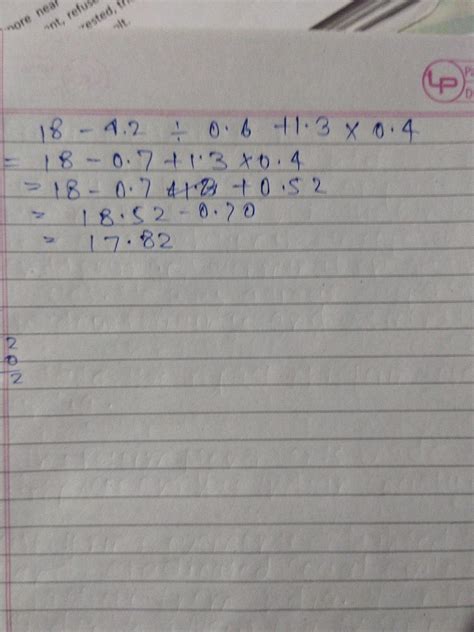 more near
nt, refuse
rested, fr
lt.
LP
P
D
18 - 4.2 ÷ 0.6 + 1.3 × 0.4
= 18 - 0.7 + 1.3 × 0.4
= 18 - 0.7 + 0.52
= 18.52 - 0.70
= 17.82
2
0
2